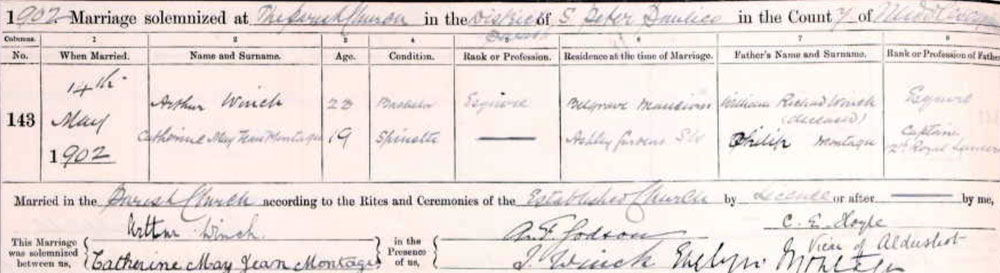 1902 Marriage solemnized at The Parish Church in the District of S. Peter Pimlico in the County of Middlesex
Parish
Columns. 1 2 3 4 5 6 7 8
No. When Married. Name and Surname. Age. Condition. Rank or Profession. Residence at the time of Marriage. Father's Name and Surname. Rank or Profession of Father
143 14th May 1902
Arthur Winch 23 Bachelor Esquire Belgrave Mansions William Richard Winch (deceased) Esquire
Catherine May Jean Montagu 19 Spinster — Ashley Gardens SW Philip Montagu Captain 12th Royal Lancers
Married in the Parish Church according to the Rites and Ceremonies of the Established Church by Licence or after — by me,
C. E. Hoyle
This Marriage was solemnized between us, { Arthur Winch } in the Presence of us, { A. F. Godson Vicar of Aldershot
Catherine May Jean Montagu J. Winch Evelyn Montagu